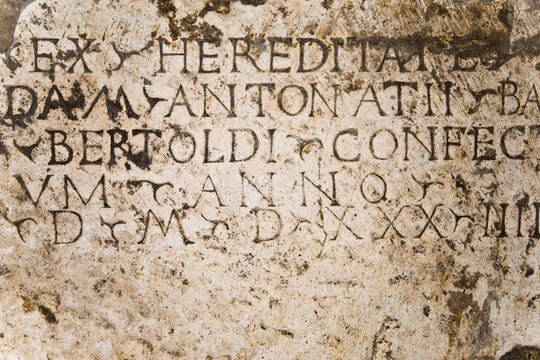 EX HEREDITATE
DAM ANTONATII BA
BERTOLDI CONFEC
VM ANNO
D M D XXX IIII